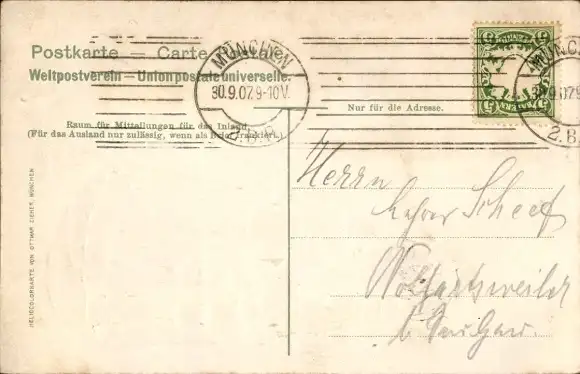 Postkarte — Carte postale
Weltpostverein — Union postale universelle.
MÜNCHEN
30.9.07.9-10V.
2.B.
Nur für die Adresse.
Raum für Mitteilungen für das Inland.
(Für das Ausland nur zulässig, wenn als Brief frankiert.)
Herrn
Lehrer Scheef
Wolfartsweiler
b. Saulgau.
HELIOCOLORKARTE VON OTTMAR ZIEHER, MÜNCHEN
5
BAYERN
MÜNCHEN
30.9.07.9
2.B.